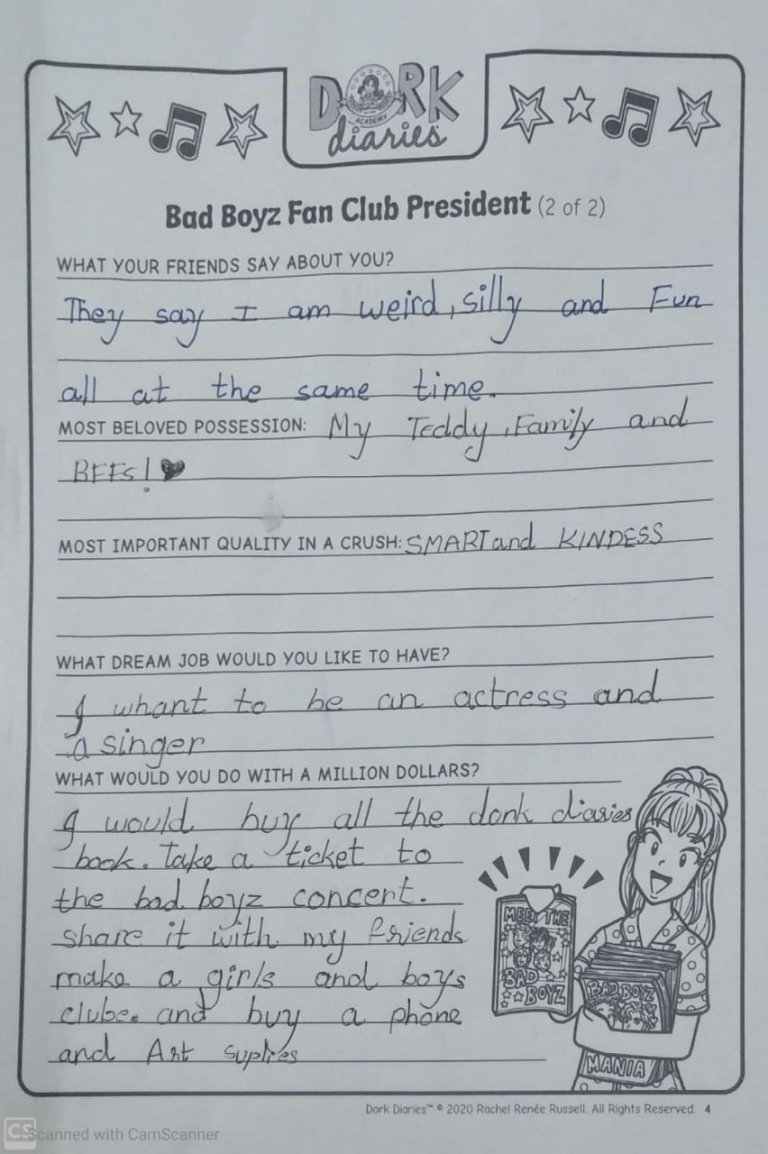 DORK
ACADEMY
diaries
Bad Boyz Fan Club President (2 of 2)
WHAT YOUR FRIENDS SAY ABOUT YOU?
They say I am weird, silly and Fun
all at the same time.
MOST BELOVED POSSESSION: My Teddy, Family and
BFFs!
MOST IMPORTANT QUALITY IN A CRUSH: SMART and KINDESS
WHAT DREAM JOB WOULD YOU LIKE TO HAVE?
I whant to be an actress and
a singer
WHAT WOULD YOU DO WITH A MILLION DOLLARS?
I would buy all the dork diaries
book. Take a ticket to
the bad boyz concert.
share it with my friends
make a girls and boys
clube. and buy a phone
and Art suplies
MEET THE
BAD
BOYZ
BAD BOYZ
MANIA
Dork Diaries™ © 2020 Rachel Renée Russell. All Rights Reserved. 4
CS Scanned with CamScanner